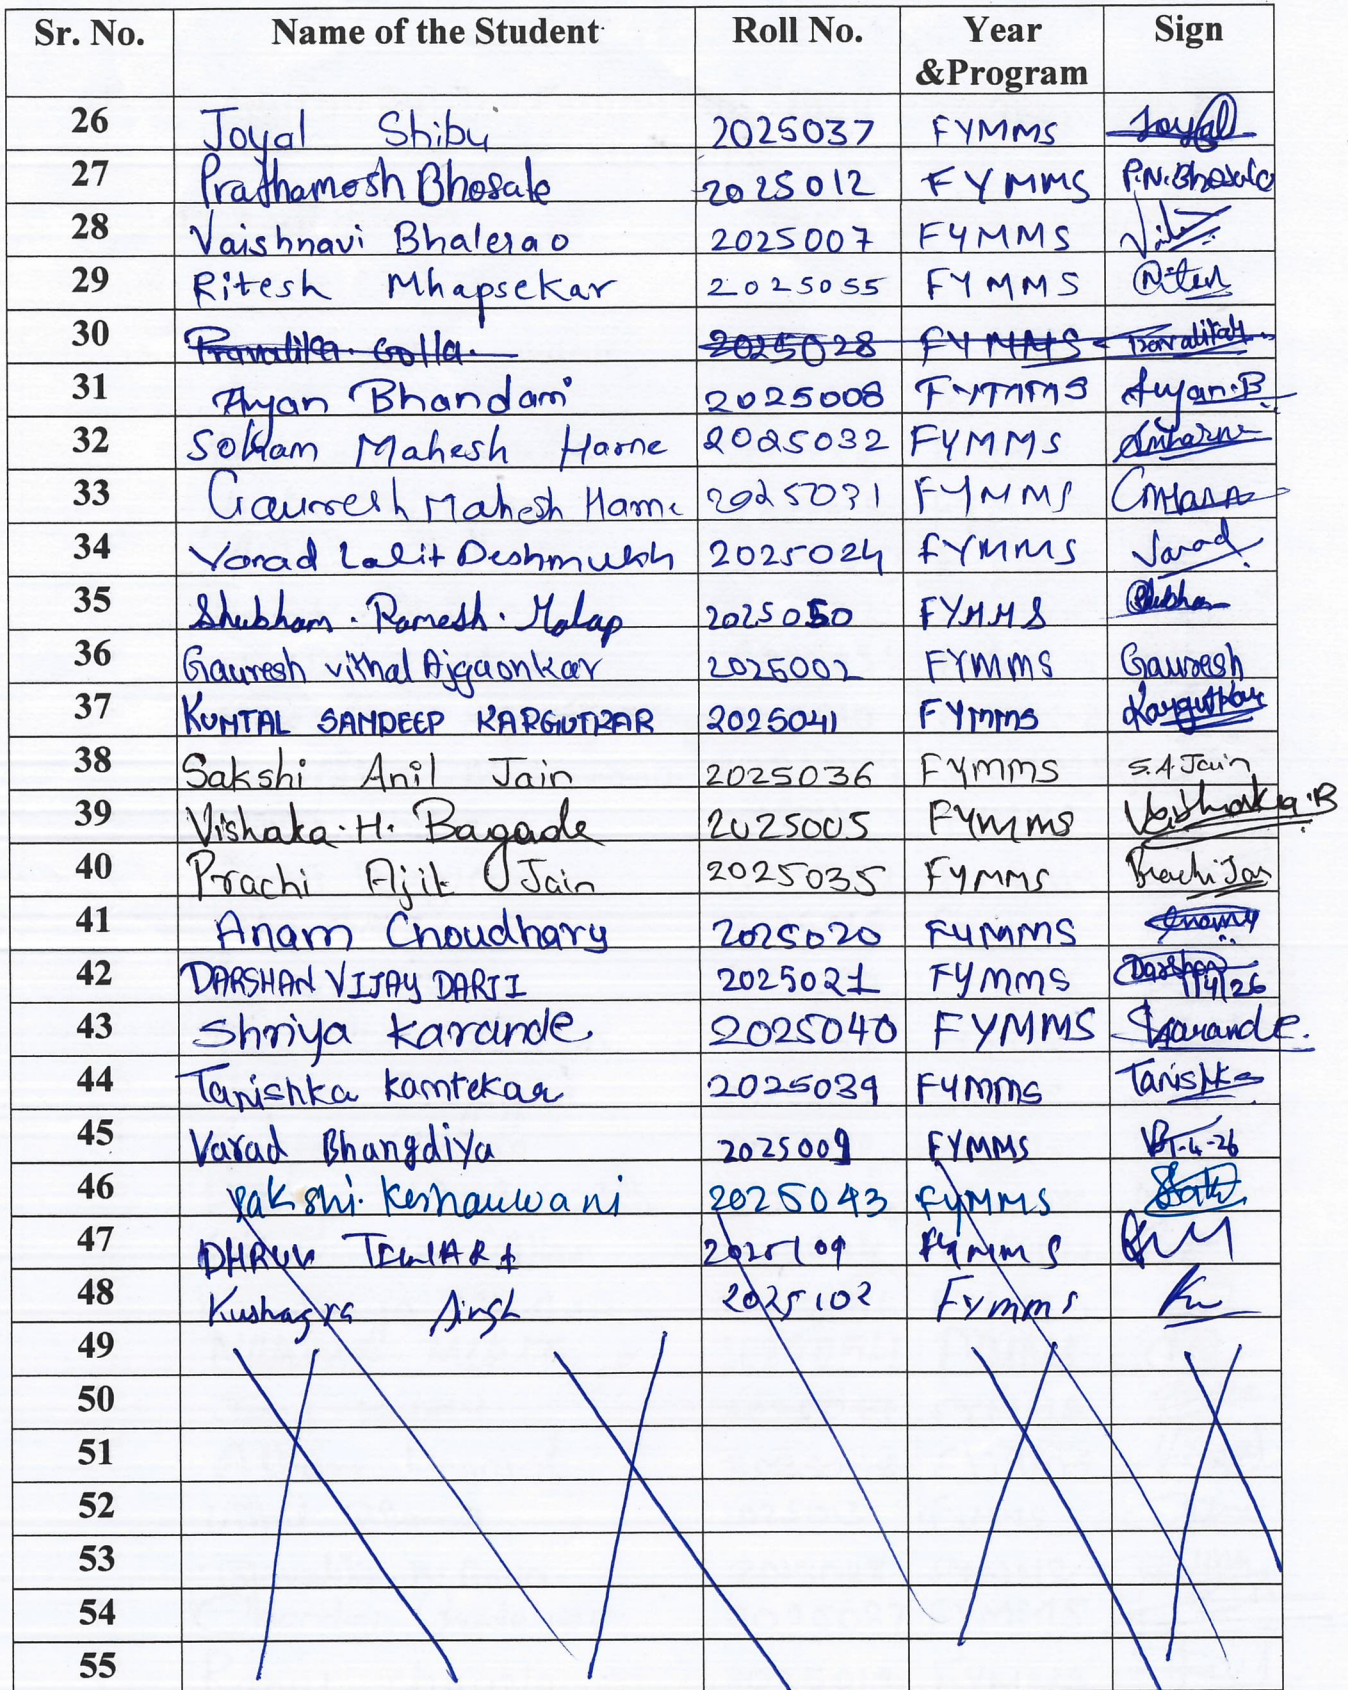 Sr. No. Name of the Student Roll No. Year &Program Sign
26 Joyal Shibu 2025037 FYMMS Joyal
27 Prathamesh Bhosale 2025012 FYMMS P.N.Bhosale
28 Vaishnavi Bhalerao 2025007 FYMMS
29 Ritesh Mhapsekar 2025055 FYMMS Ritesh
30 Pravalika Golla. 2025028 FYMMS Pravalika
31 Ayan Bhandari 2025008 FYMMS Ayan.B
32 Soham Mahesh Harne 2025032 FYMMS
33 Gauresh Mahesh Harne 2025031 FYMMS
34 Varad Lalit Deshmukh 2025024 FYMMS Varad
35 Shubham. Ramesh. Malap 2025050 FYMMS
36 Gauresh vithal Ajgaonkar 2025002 FYMMS Gauresh
37 KUNTAL SANDEEP KARGUTKAR 2025041 FYMMS Kargutkar
38 Sakshi Anil Jain 2025036 FYMMS S.A.Jain
39 Vishaka.H. Bagade 2025005 FYMMS
40 Prachi Ajit Jain 2025035 FYMMS Prachi Jain
41 Anam Choudhary 2025020 FYMMS
42 DARSHAN VIJAY DARJI 2025021 FYMMS Darshan 1/4/26
43 Shriya Karande 2025040 FYMMS SKarande.
44 Tanishka Kamtekar 2025039 FYMMS Tanishka
45 Varad Bhangdiya 2025009 FYMMS
46 Yakshi. Kesharwani 2025043 FYMMS
47 DHRUV TEWARI 2025109 FYMMS
48 Kushagra Singh 2025102 FYMMS
49
50
51
52
53
54
55